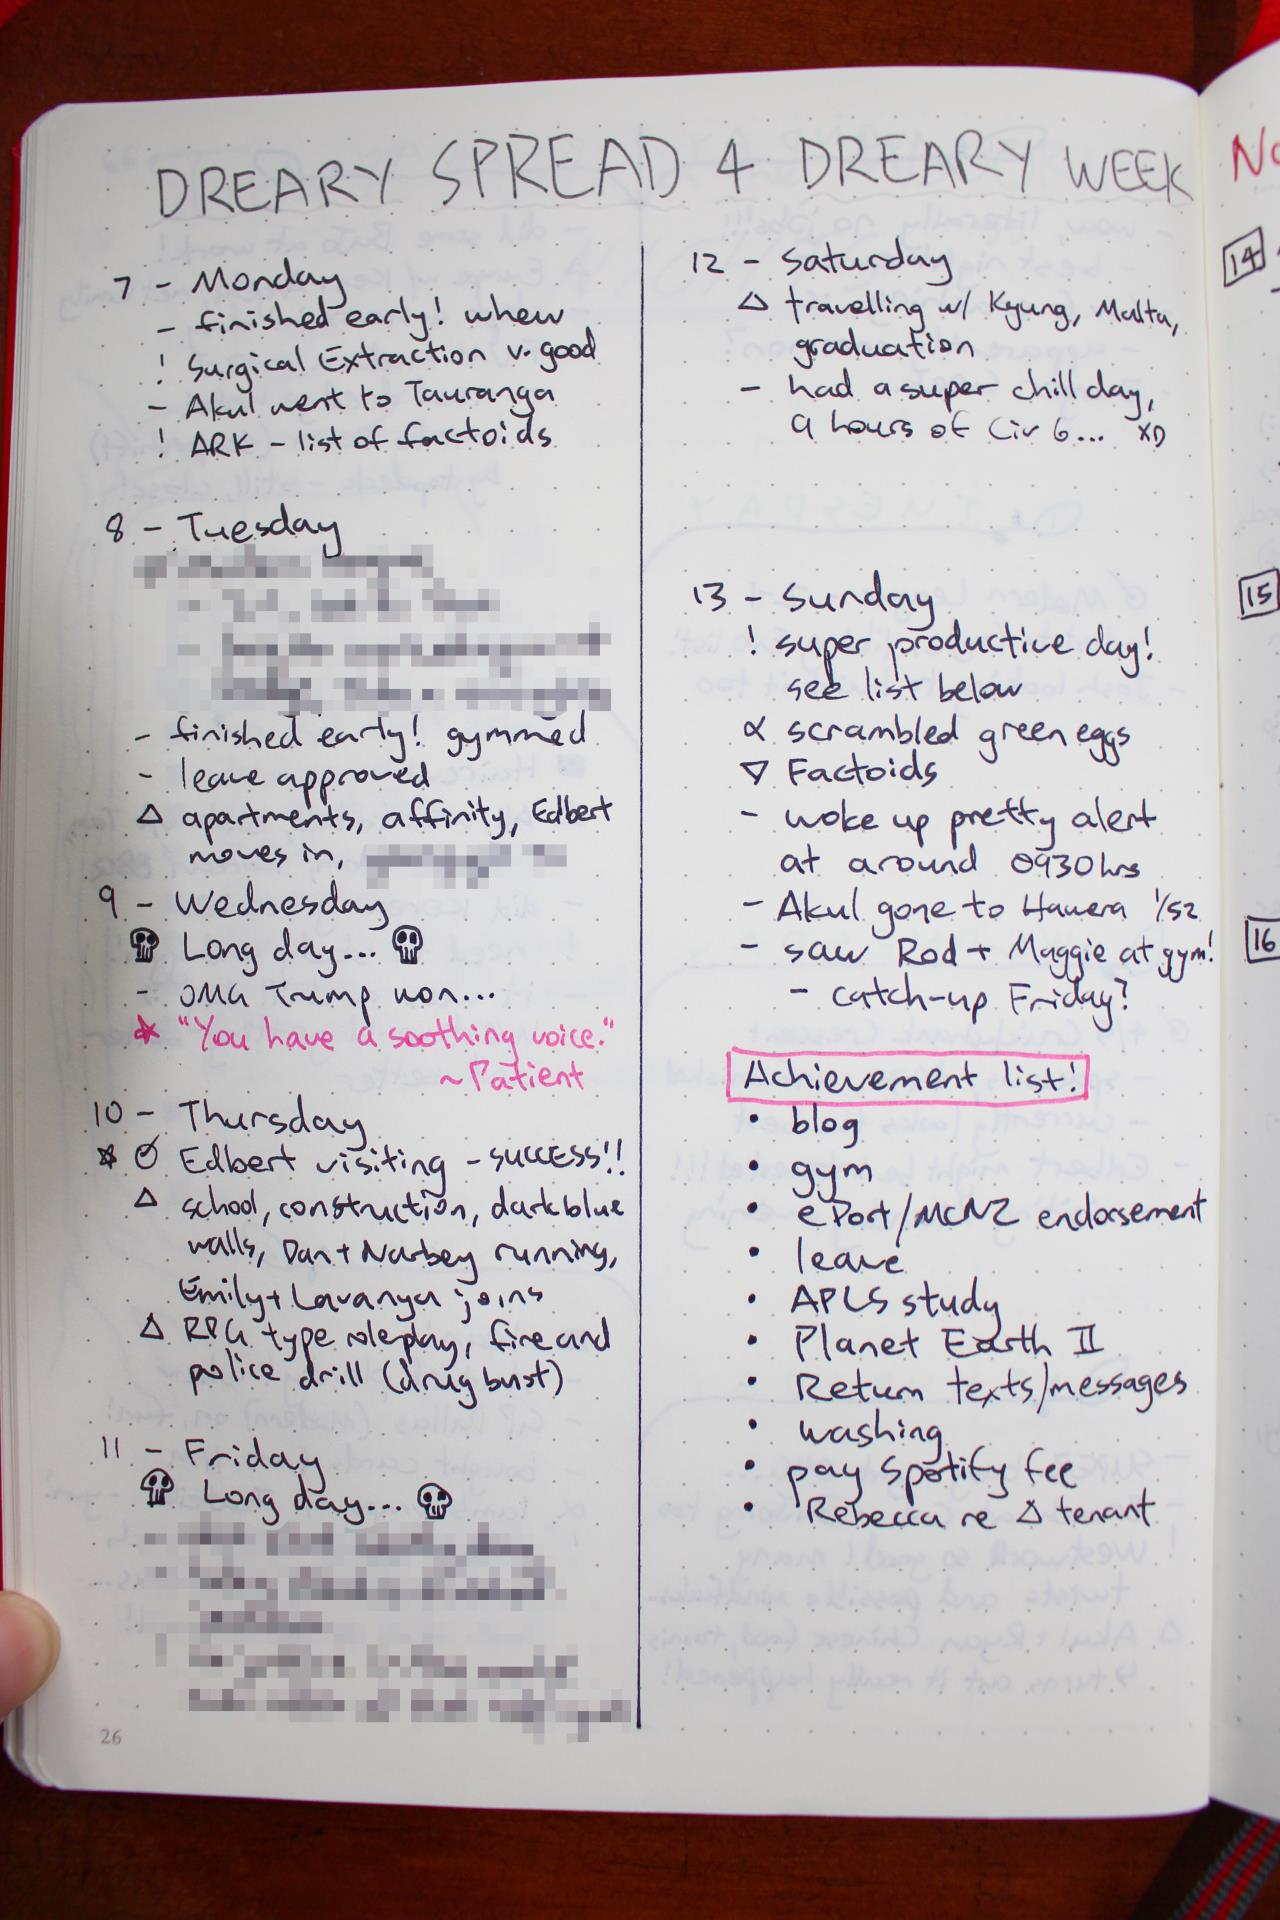 DREARY SPREAD 4 DREARY WEEK
7 - Monday
- finished early! whew
! Surgical Extraction v. good
- Akul went to Tauranga
! ARK - list of factoids
8 - Tuesday
- finished early! gymmed
- leave approved
△ apartments, affinity, Edbert
moves in,
9 - Wednesday
Long day...
- OMG Trump won...
☆ "You have a soothing voice."
~ Patient
10 - Thursday
☆ Edbert visiting - SUCCESS!!
△ school, construction, dark blue
walls, Dan + Narbey running,
Emily + Lavanya joins
△ RPG type roleplay, fire and
police drill (drug bust)
11 - Friday
Long day...
26
12 - Saturday
△ travelling w/ Kyung, Malta,
graduation
- had a super chill day,
9 hours of Civ 6... XD
13 - Sunday
! super productive day!
see list below
∝ scrambled green eggs
▽ Factoids
- woke up pretty alert
at around 0930hrs
- Akul gone to Hawera 1/52
- saw Rod + Maggie at gym!
- catch-up Friday?
Achievement list!
• blog
• gym
• ePort/MCNZ endorsement
• leave
• APLS study
• Planet Earth II
• Return texts/messages
• washing
• pay Spotify fee
• Rebecca re △ tenant
No
14
15
16